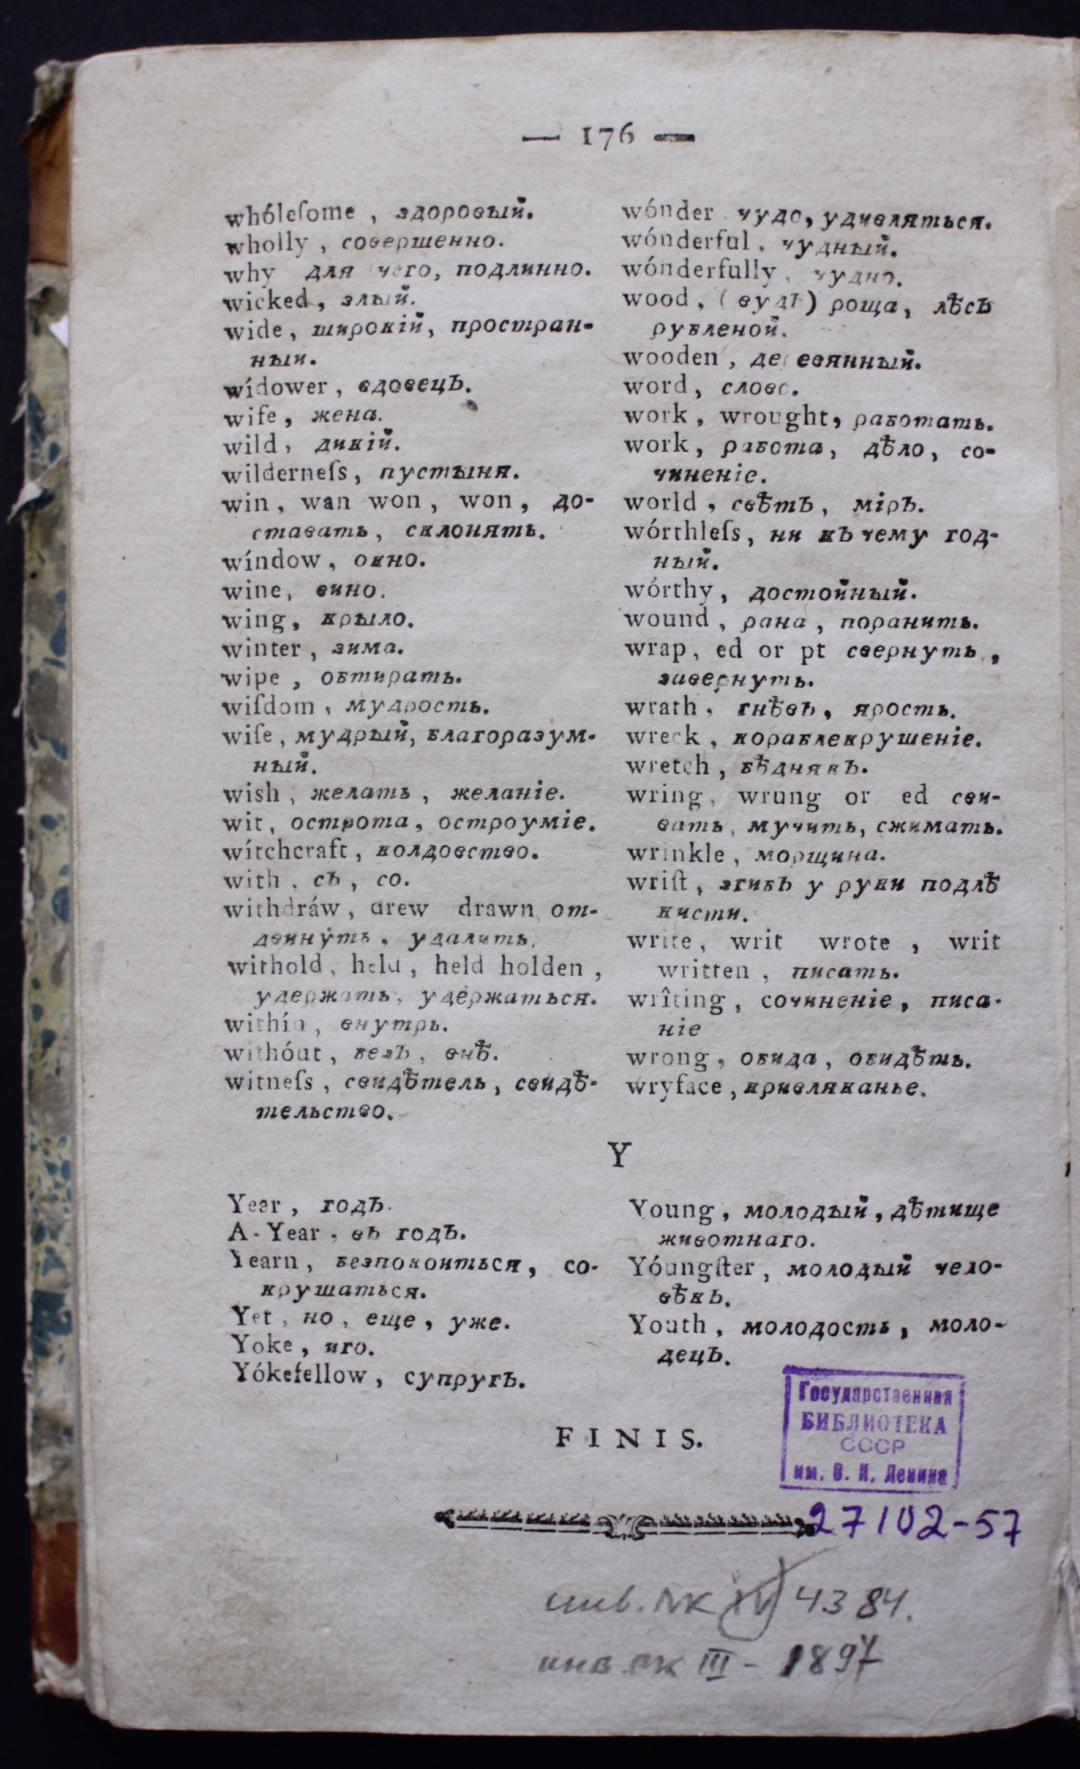 — 176 —
whóleſome , здоровый.
wholly , совершенно.
why для чего, подлинно.
wicked, злый.
wide, широкій, простран-
ный.
wídower , вдовецЪ.
wife, жена.
wild, дикій.
wilderneſs, пустыня.
win, wan won, won, до-
ставать, склонять.
wíndow, окно.
wine, вино.
wing, крыло.
winter, зима.
wipe , обтирать.
wiſdom, мудрость.
wiſe, мудрый, благоразум-
ный.
wish, желать, желаніе.
wit, острота, остроуміе.
wítchcraft, колдовство.
with, съ, со.
withdráw, drew drawn от-
двинуть, удалить.
withold, held, held holden ,
удержать, удержаться.
withín, внутрь.
withóut, безЪ, внѣ.
witneſs, свидѣтель, свидѣ-
тельство.
wónder чудо, удивляться.
wónderful, чудный.
wónderfully, чудно.
wood, (вудЪ) роща, лѣсЪ
рубленой.
wooden, деревянный.
word, слово.
work, wrought, работать.
work, работа, дѣло, со-
чиненіе.
world, свѣтЪ, мірЪ.
wórthleſs, ни кЪ чему год-
ный.
wórthy, достойный.
wound, рана, поранить.
wrap, ed or pt свернуть,
завернуть.
wrath, гнѣвЪ, ярость.
wreck, кораблекрушеніе.
wretch, бѣднякЪ.
wring, wrung or ed сви-
вать, мучить, сжимать.
wrinkle, морщина.
wriſt, згибЪ у руки подлѣ
кисти.
write, writ wrote , writ
written, писать.
wrîting, сочиненіе, писа-
ніе
wrong, обида, обидѣть.
wryface, кривляканье.
Y
Year, годЪ.
A-Year, въ годЪ.
Yearn, безпокоиться, со-
крушаться.
Yet, но, еще, уже.
Yoke, иго.
Yókefellow, супругЪ.
Young, молодый, дѣтище
животнаго.
Yóungſter, молодый чело-
вѣкЪ.
Youth, молодость, моло-
децЪ.
FINIS.
Государственная
БИБЛИОТЕКА
СССР
им. В. И. Ленина
27102-57
инв. МК IV 4384.
инв МК III - 1897